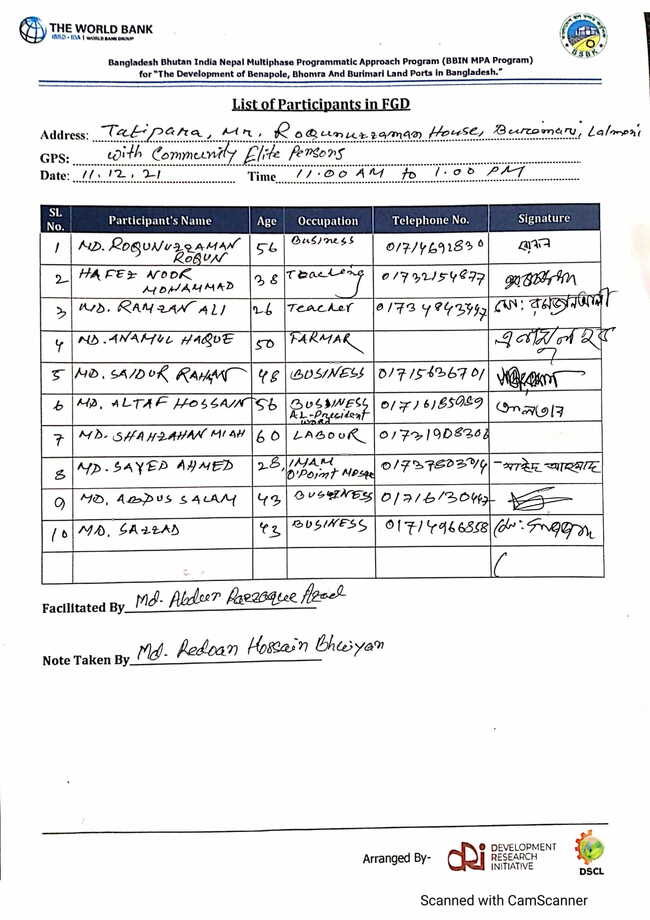 THE WORLD BANK
IBRD • IDA | WORLD BANK GROUP
BSBK
Bangladesh Bhutan India Nepal Multiphase Programmatic Approach Program (BBIN MPA Program)
for "The Development of Benapole, Bhomra And Burimari Land Ports in Bangladesh."
List of Participants in FGD
Address: Tatipara, Mr. Roqunuzzaman House, Burimari, Lalmoni
GPS: with Community Elite Persons
Date: 11.12.21 Time 11.00 AM to 1.00 PM
SL No. Participant's Name Age Occupation Telephone No. Signature
1 MD. ROQUNUZZAMAN ROQUN 56 Business 01714692830
2 HAFEZ NOOR MOHAMMAD 38 Teaching 01732154877
3 MD. RAMZAN ALI 26 Teacher 01734843447 মো: রমজান আলী
4 MD. ANAMUL HAQUE 50 FARMAR এনামুল হক
5 MD. SAIDUR RAHMAN 48 BUSINESS 01715636701
6 MD. ALTAF HOSSAIN 56 BUSINESS AL-Precident word 01716185989 আলতাব
7 MD. SHAHZAHAN MIAH 60 LABOUR 01731908306
8 MD. SAYED AHMED 28, IMAM O'Point Mosqe 01737803014 সাইদ আহমাদ
9 MD. ABDUS SALAM 43 BUSINESS 01716130447
10 MD. SAZZAD 43 BUSINESS 01714966558
Facilitated By Md. Abdur Razzaque Azad
Note Taken By Md. Redoan Hossain Bhuiyan
Arranged By- DRi DEVELOPMENT RESEARCH INITIATIVE
DSCL
Scanned with CamScanner